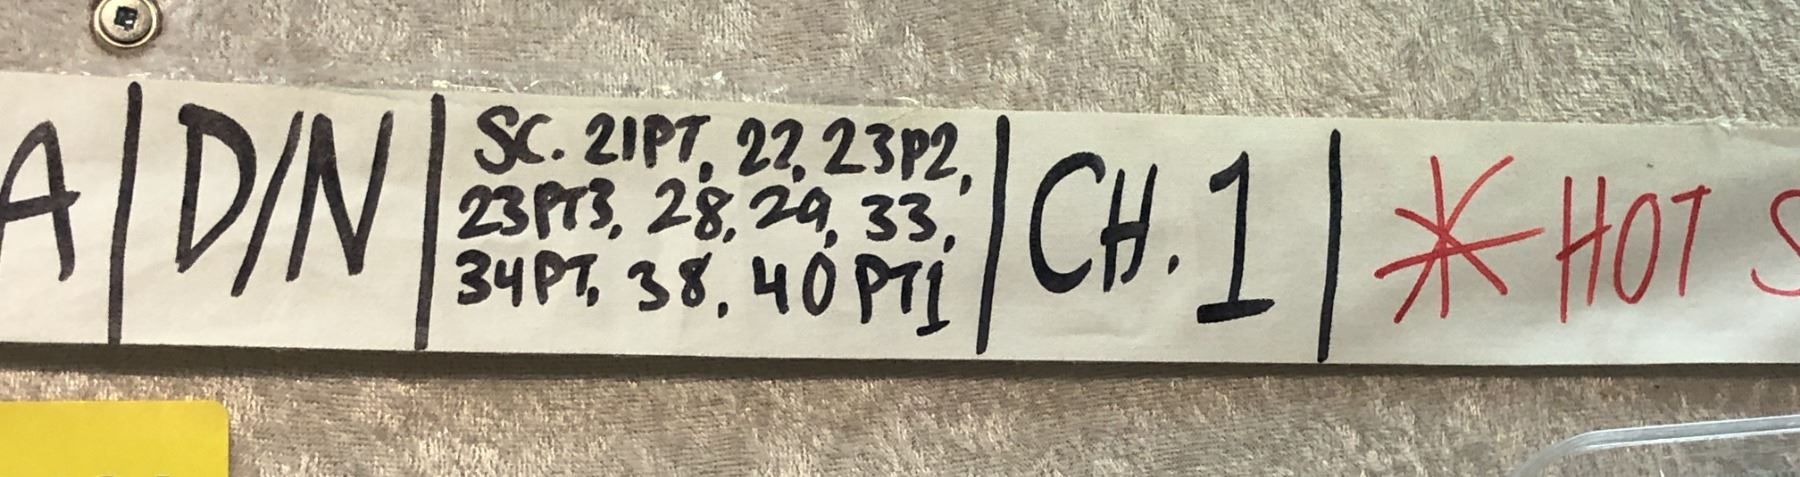 A | D/N | SC. 21PT, 22, 23P2, | CH. 1 | * HOT S
23PT3, 28, 29, 33,
34PT, 38, 40 PT1